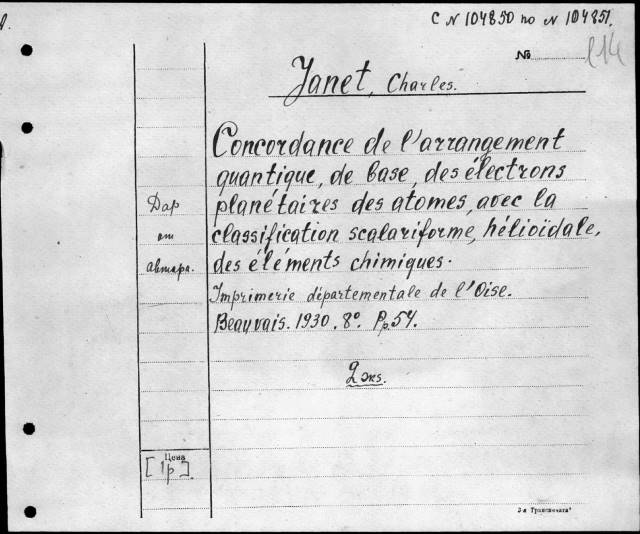 С № 104850 по № 104851.
№ 214
Janet, Charles.
Concordance de l'arrangement
quantique, de base, des électrons
planétaires des atomes, avec la
classification scalariforme, hélioïdale,
des éléments chimiques.
Imprimerie départementale de l'Oise.
Beauvais. 1930. 8º. Pp. 54.
2 экз.
Дар
от
автора.
Цена
[1р].